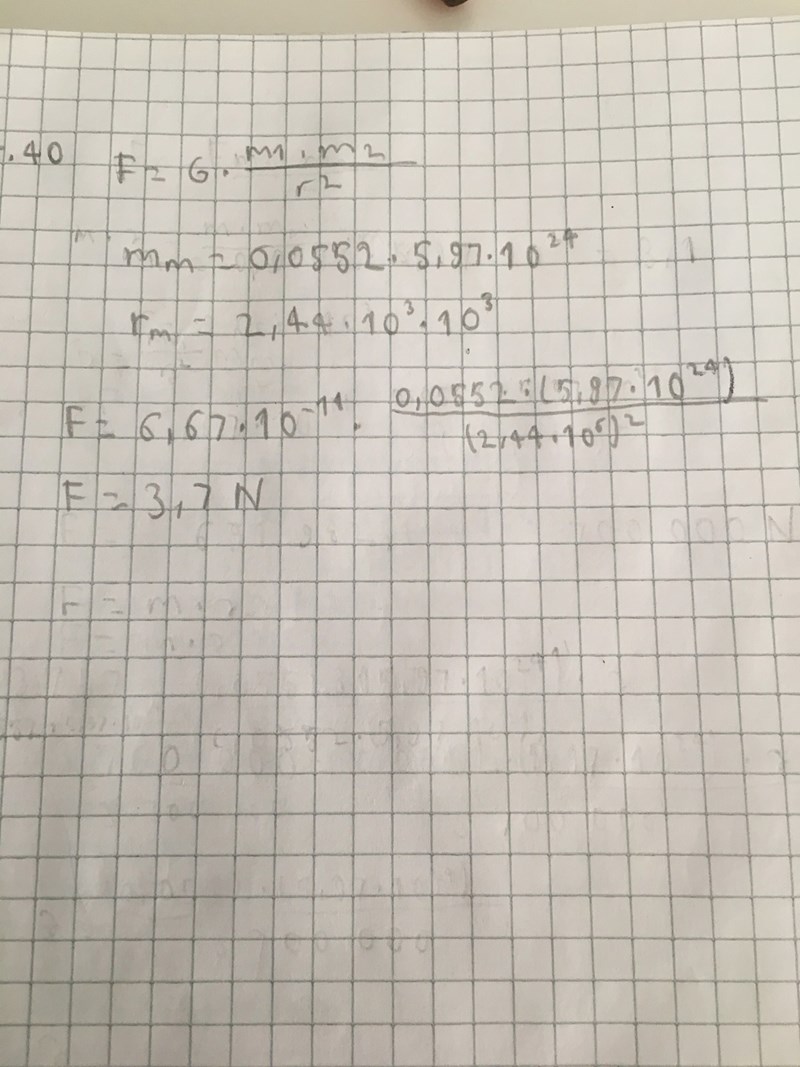 .40 F = G · m1 · m2 / r²
mm = 0,0552 · 5,97 · 10²⁴
rm = 2,44 · 10³ · 10³
F = 6,67 · 10⁻¹¹ · 0,0552 · (5,97 · 10²⁴) / (2,44 · 10⁶)²
F = 3,7 N